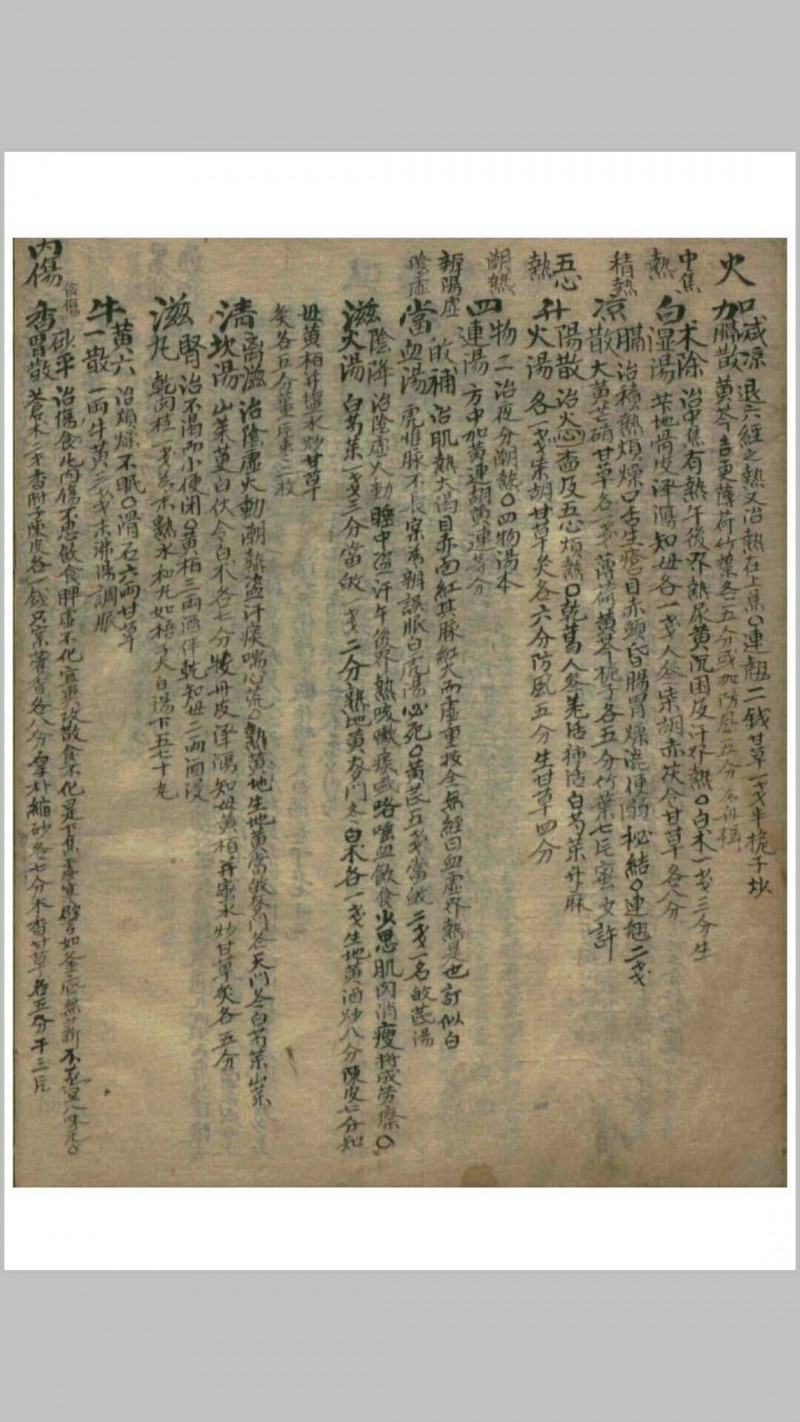 火
加減凉膈散 退六經之熱又治熱在上焦○連翹二錢甘草一戔半梔子炒
黃芩吉更薄荷竹葉各五分或加防風五分
中焦熱
白朮除湿湯 治中焦有熱午後界熱尿黃沉困反汗界熱○白朮一戔三分生
芐地骨皮泽瀉知母各一戔人参柴胡赤茯令甘草各八分
積熱
凉膈散 治積熱煩燥口舌生瘡目赤頭昏腸胃燥澁便溺秘結○連翹二戔
大黃芒硝甘草各一戔薄荷黃芩梔子各五分竹葉七片蜜少許
五心熱
升陽散火湯 治火欝及五心煩熱○乾葛人参羌活獨活白芍藥升麻
各一戔柴胡甘草炙各六分防風五分生甘草四分
潮熱
四物二連湯 治夜分潮熱○四物湯本
方中加黃連胡黃連等分
辨陽虚陰虚
當歸補血湯 治肌熱大渴目赤面紅其脉紅大而虚重按全無經曰血虚界熱是也訂似白
虎惟脉不長宗為辨誤服白虎湯必死○黃芪五戔當歸二戔一名歸芪湯
滋陰降火湯 治陰虚火動睡中盜汗午後界熱咳嗽痰或咯嗑血飲食少思肌肉消瘦將成劳瘵○
白芍藥一戔三分當歸一戔二分熟地黃麥門冬白朮各一戔生地黃酒炒八分陳皮七分知
母黃栢并塩水炒甘草
炙各五分薑三片棗二枚
清离滋坎湯 治陰虚火動潮熱盜汗痰喘心荒○熟黃地生地黃當歸麥門冬天門冬白芍藥山藥
山茱萸白伏令白朮各七分牧丹皮泽瀉知母黃栢并蜜水炒甘草炙各五分
滋腎丸 治不渴而小便閉○黃栢三両酒伴乾知母二両酒浸
乾肉桂一戔為末熟水和丸如梧子大白湯下五七十丸
牛黃六一散 治煩燥不眠○滑石六両甘草
一両牛黃二戔末沸湯調服
內傷
香砂平胃散 治傷食
蒼朮二戔香附子陳皮各一錢只宗藿香各八分厚朴縮砂各七分木香甘草各五分干三片